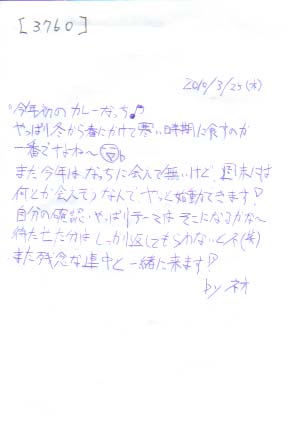 [3760]
2010/3/25(木)
今年初のカレーだっち♪
やっぱり冬から春にかけて寒い時期に食すのが
一番ですよね〜
まだ今年は なっちに会えて無いけど、週末には
何とか会えそうなんで やっと始動できます!
自分の確認、やっぱりテーマは そこになるかな〜
待たせた分は しっかり返してもらわないとネ(笑)
また残念な連中と一緒に来ます!
by ネオ